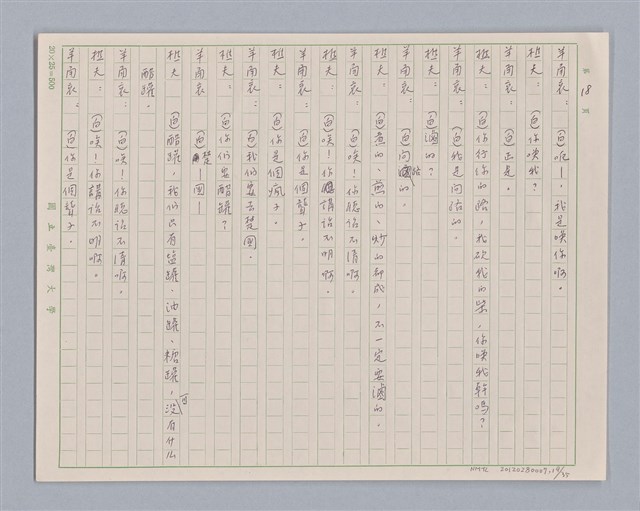 第 18 頁
羊角哀： (白)呃！我是喚你啊。
樵夫： (白)你喚我？
羊角哀： (白)正是。
樵夫： (白)你行你的路，我砍我的柴，你喚我幹嗎？
羊角哀： (白)我是問路的。
樵夫： (白)滷的？
羊角哀： (白)問路的。
樵夫： (白)煮的、煎的、炒的都成，不一定要滷的。
羊角哀： (白)唉！你聽話不清啊。
樵夫： (白)唉！你講話不明啊。
羊角哀： (白)你是個聾子。
樵夫： (白)你是個瘋子。
羊角哀： (白)我們要去楚國。
樵夫： (白)你們要醋罐？
羊角哀： (白)楚！國！
樵夫 (白)醋罐，我們只有鹽罐、油罐、糖罐，可沒有什么
醋罐。
羊角哀： (白)唉！你聽話不清啊。
樵夫： (白)唉！你講話不明啊。
羊角哀： (白)你是個聾子。
20×25=500
國立臺灣大學
NMTL 20120280007.18/35